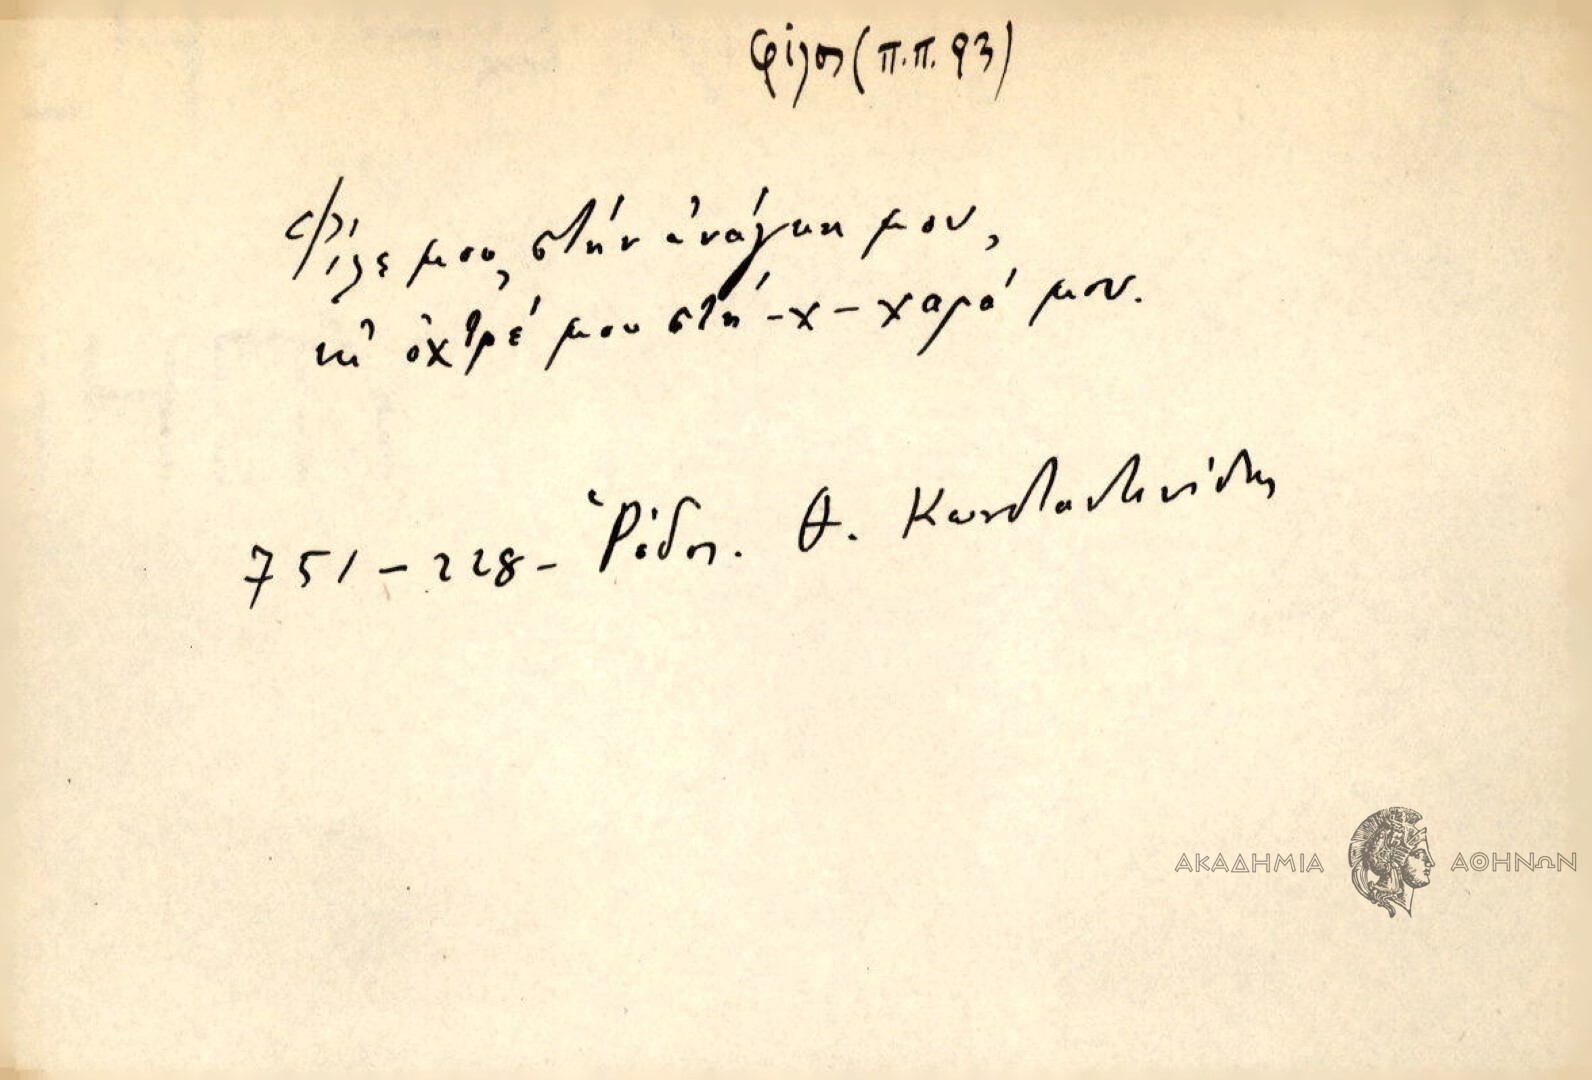 φίλος (π.π. 93)
Φίλε μου, στήν ἀνάγκη μου,
κι' ὀχτρέ μου στή -χ- χαρά μου.
751 - 228 - Ῥόδος. Θ. Κωνσταντινίδης
ΑΚΑΔΗΜΙΑ ΑΘΗΝΩΝ